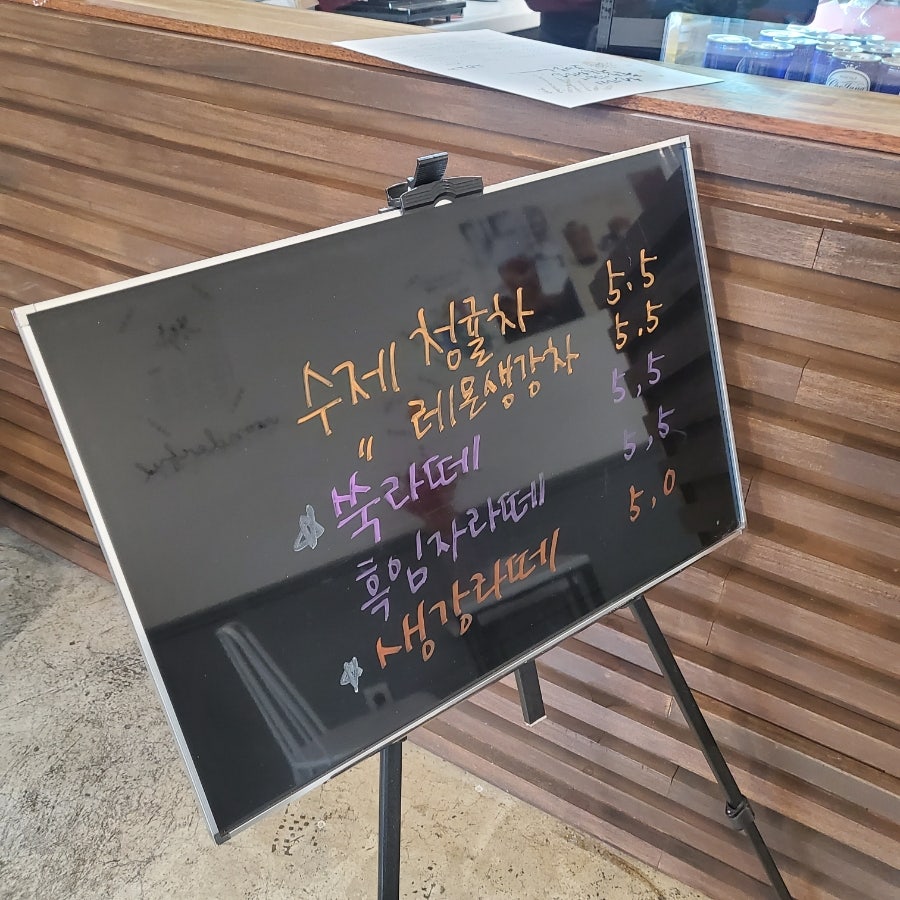 수제 청귤차 5.5
〃 레몬생강차 5.5
☆ 쑥라떼 5.5
흑임자라떼 5.5
☆ 생강라떼 5.0